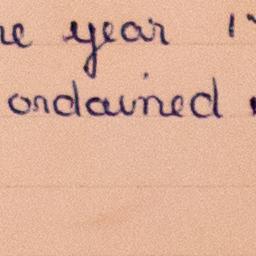 year
ordained